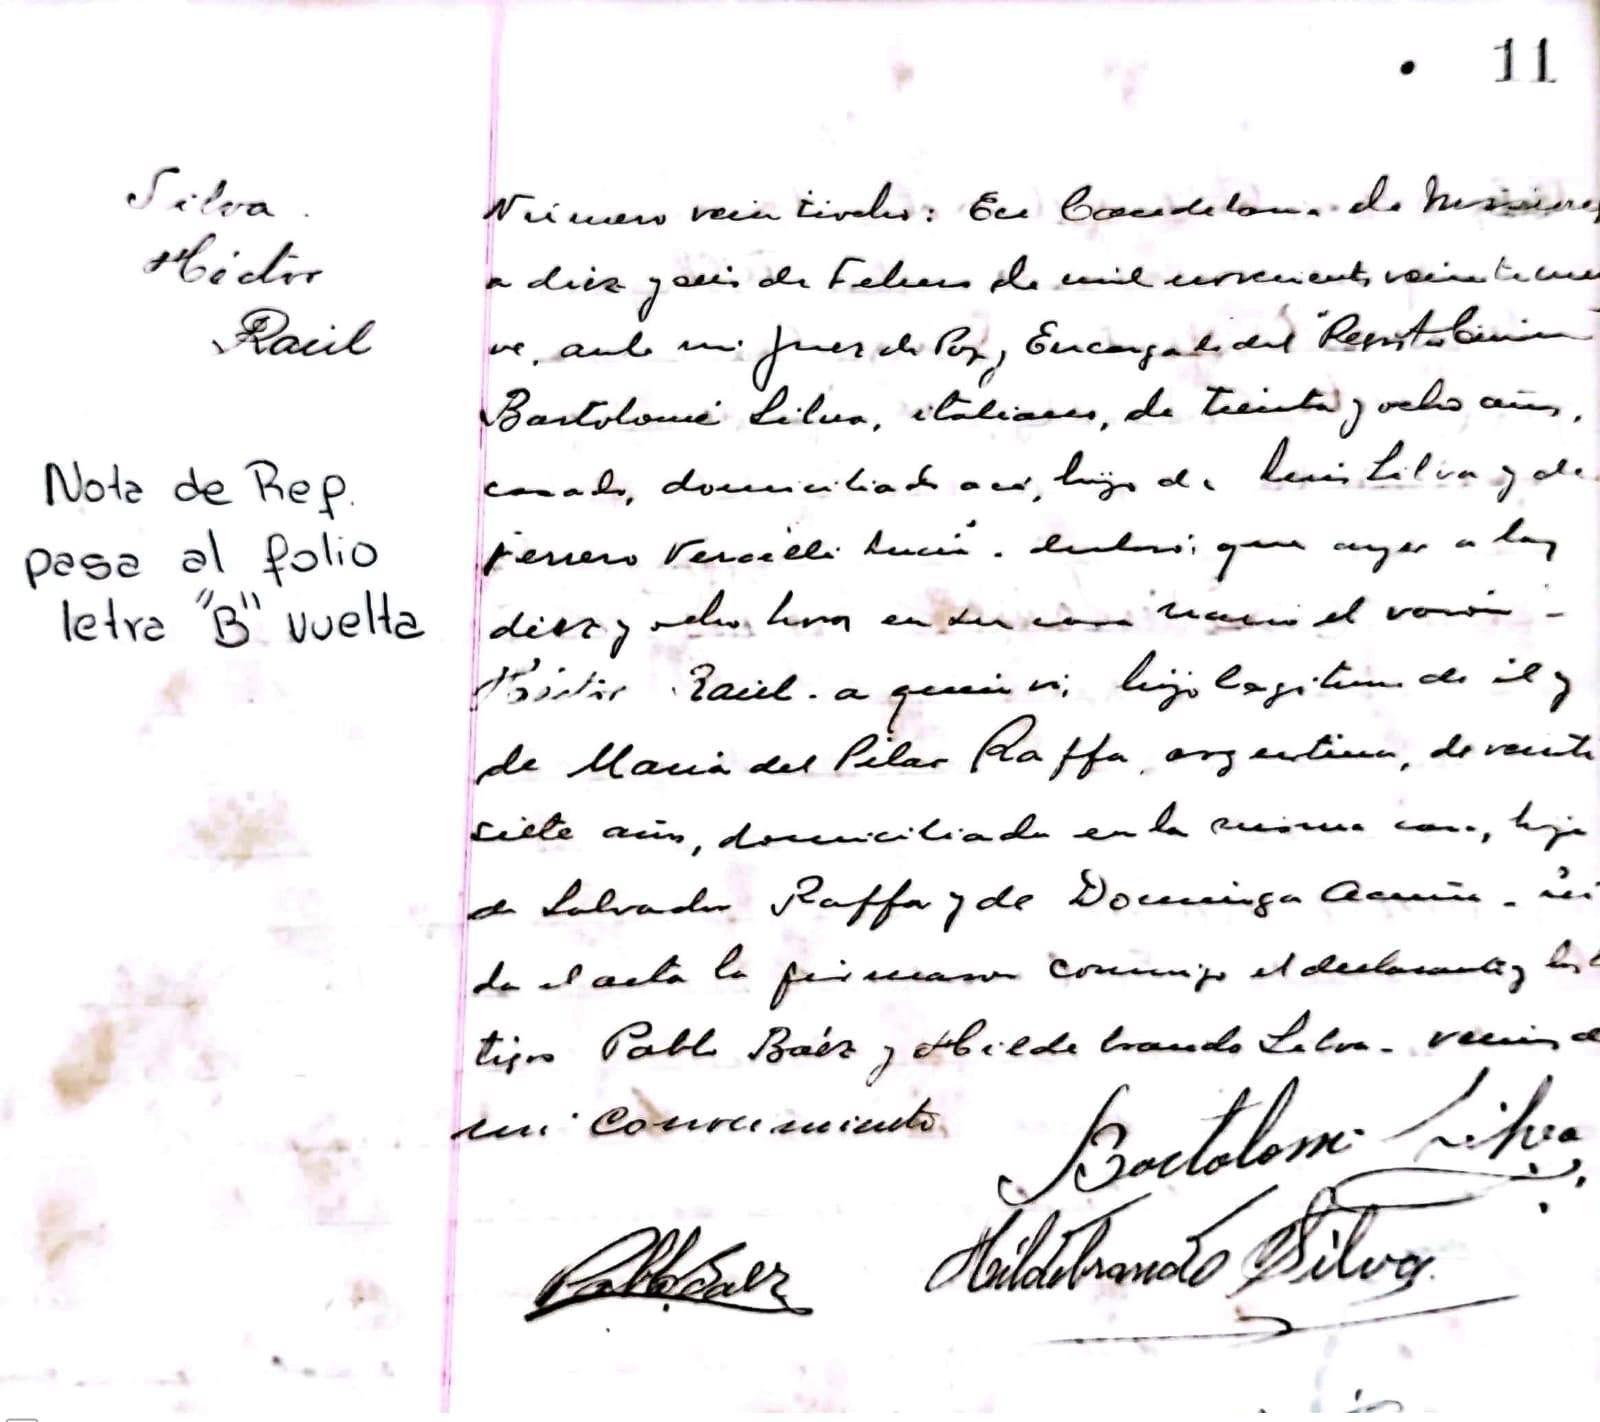 11
Silva
Héctor
Raúl
Nota de Rep.
pasa al folio
letra "B" vuelta
Número veintiocho: En Candelaria de Misiones
a diez y seis de Febrero de mil novecientos veintinue
ve, ante mi Juez de Paz y Encargado del Registro Civil
Bartolomé Silva, italiano, de treinta y ocho años,
casado, domiciliado acá, hijo de Luis Silva y de
Ferrero Vercelli Lucía. declaró: que ayer a las
diez y ocho horas en su casa nació el varón -
Héctor Raúl. a quien vi, hijo legítimo de él y
de María del Pilar Raffa, argentina, de veinti
siete años, domiciliada en la misma casa, hija
de Salvador Raffa y de Dominga Acuña. Leí
da el acta la firmaron conmigo el declarante y los tes
tigos Pablo Báez y Hildebrando Silva. vecinos de
mi conocimiento
Bartolomé Silva
Pablo Baez
Hildebrando Silva